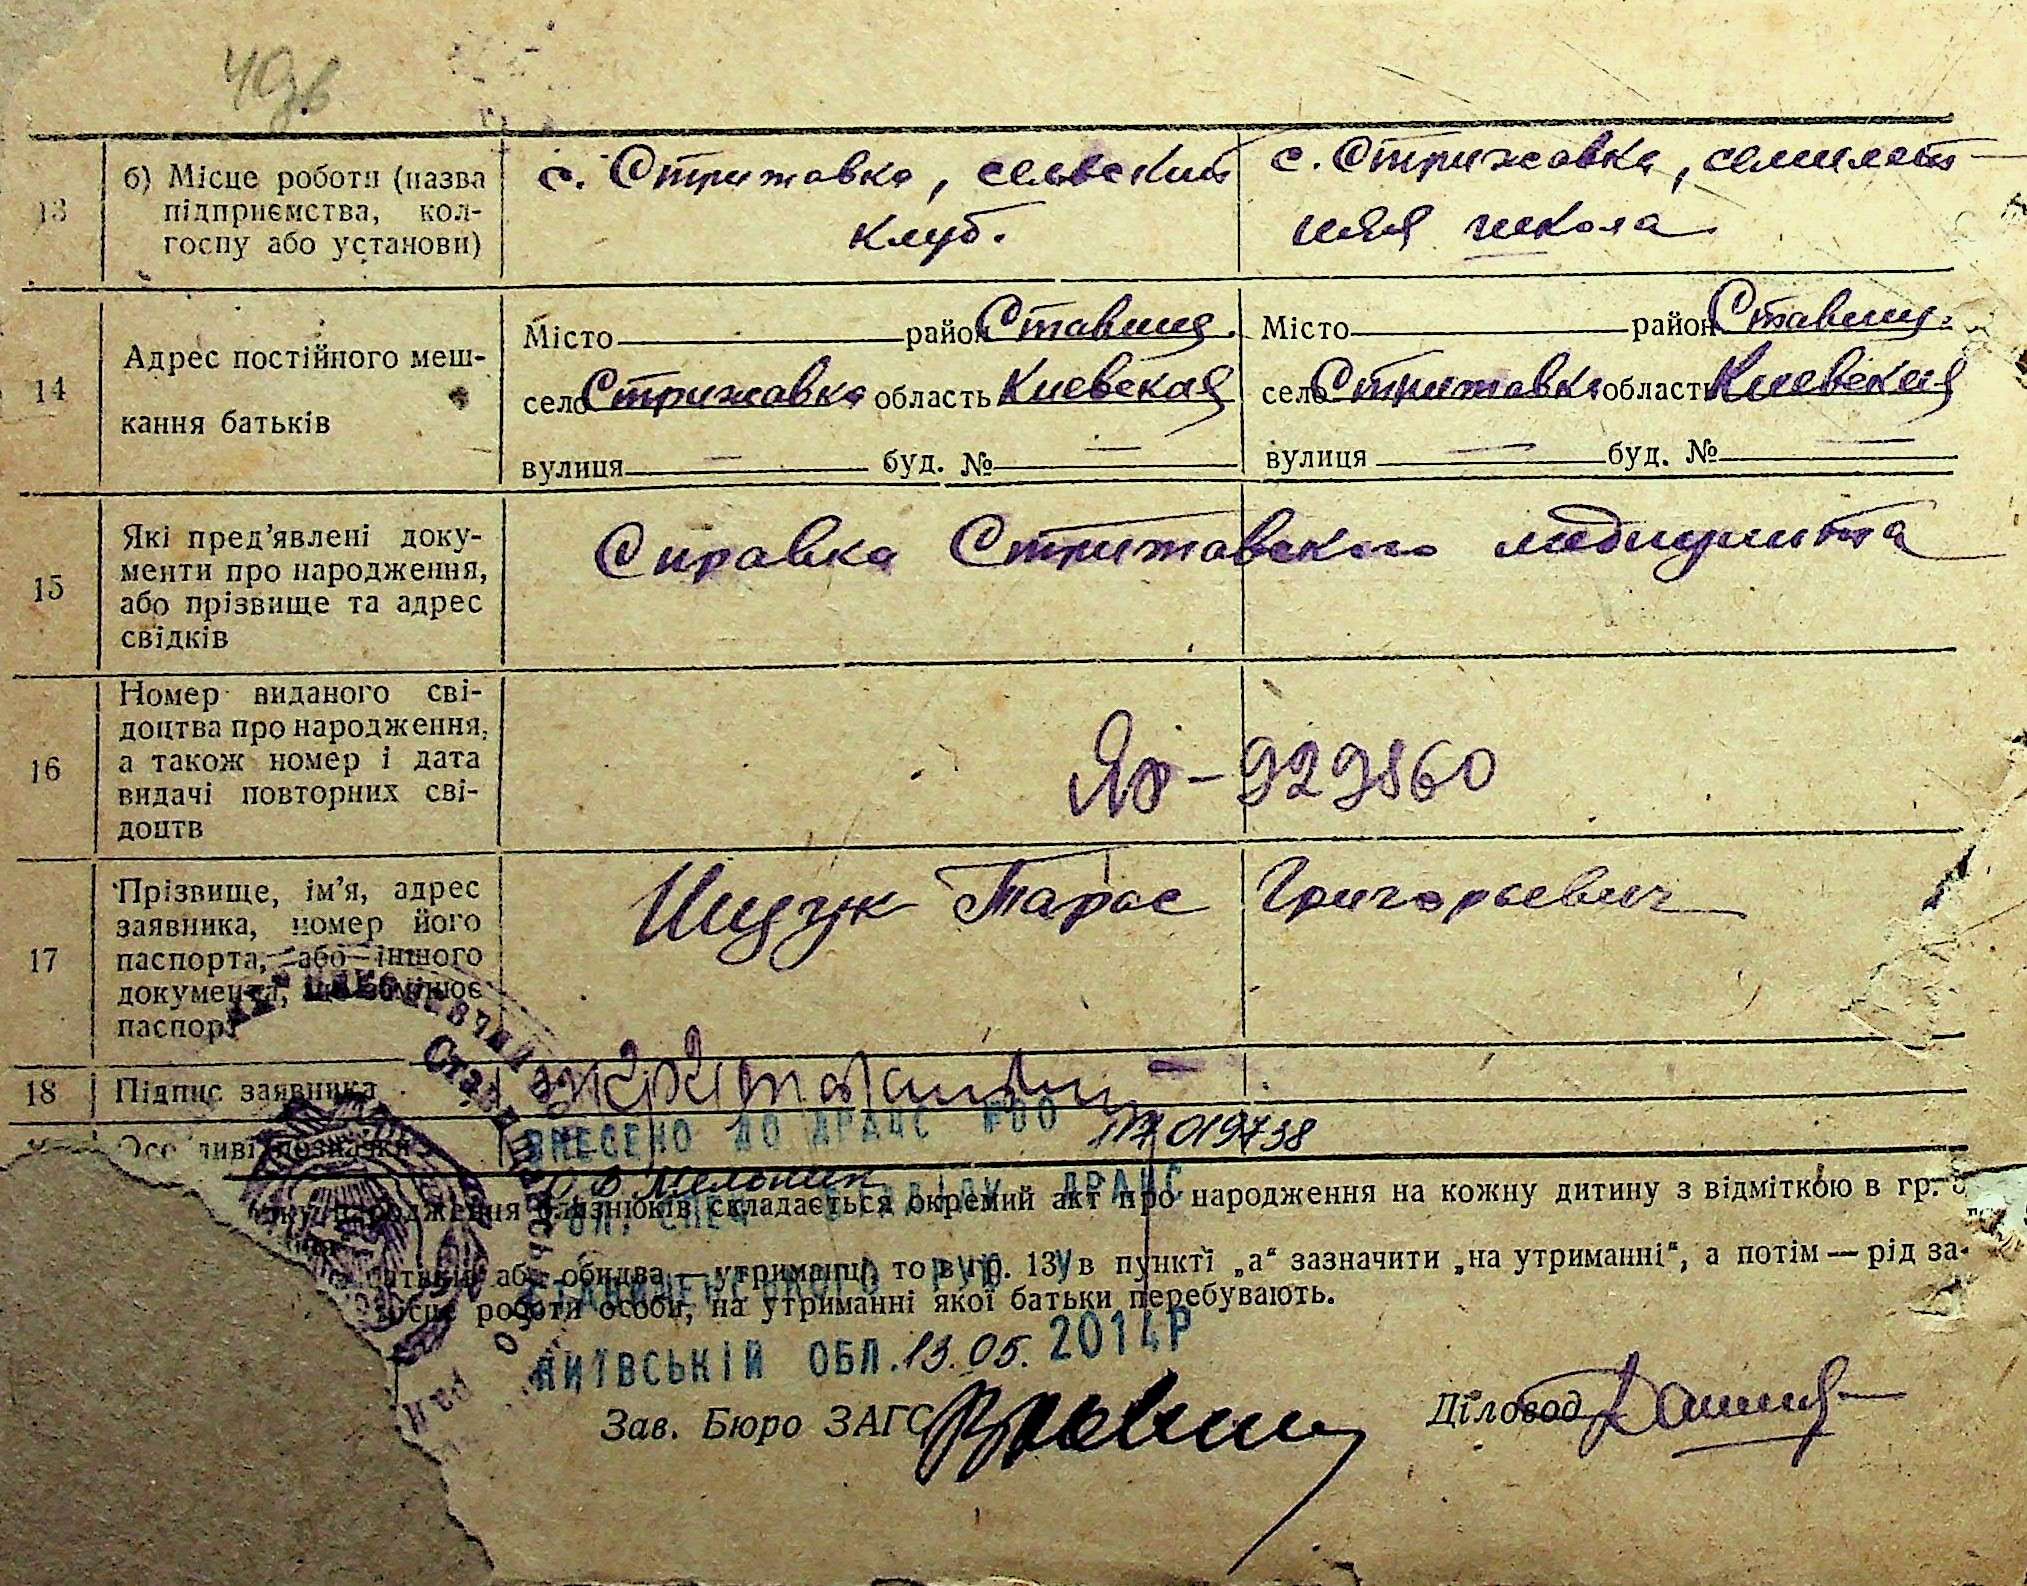 13
б) Місце роботи (назва
підприємства, кол-
госпу або установи)
с. Стрижавка, сельский
клуб.
с. Стрижавка, семилет-
няя школа
14
Адрес постійного меш-
кання батьків
Місто район Ставищ.
село Стрижавка область Киевская
вулиця — буд. № —
Місто район Ставищ.
село Стрижавка область Киевская
вулиця — буд. № —
15
Які пред'явлені доку-
менти про народження,
або прізвище та адрес
свідків
Справка Стрижавского медпункта
16
Номер виданого сві-
доцтва про народження,
а також номер і дата
видачі повторних сві-
доцтв
929860
17
Прізвище, ім'я, адрес
заявника, номер його
паспорта, або іншого
документа, що замінює
паспорт
Ищук Тарас Григорьевич
18
Підпис заявника
Особливі позначки
ВНЕСЕНО ДО ДРАЦС
019738
народження близнюків складається окремий акт про народження на кожну дитину з відміткою в гр.
або обидва — утриманці, то в гр. 13 в пункті „а“ зазначити „на утриманні“, а потім — рід за-
місце роботи особи, на утриманні якої батьки перебувають.
КИЇВСЬКІЙ ОБЛ. 13.05. 2014Р
Зав. Бюро ЗАГС
Діловод